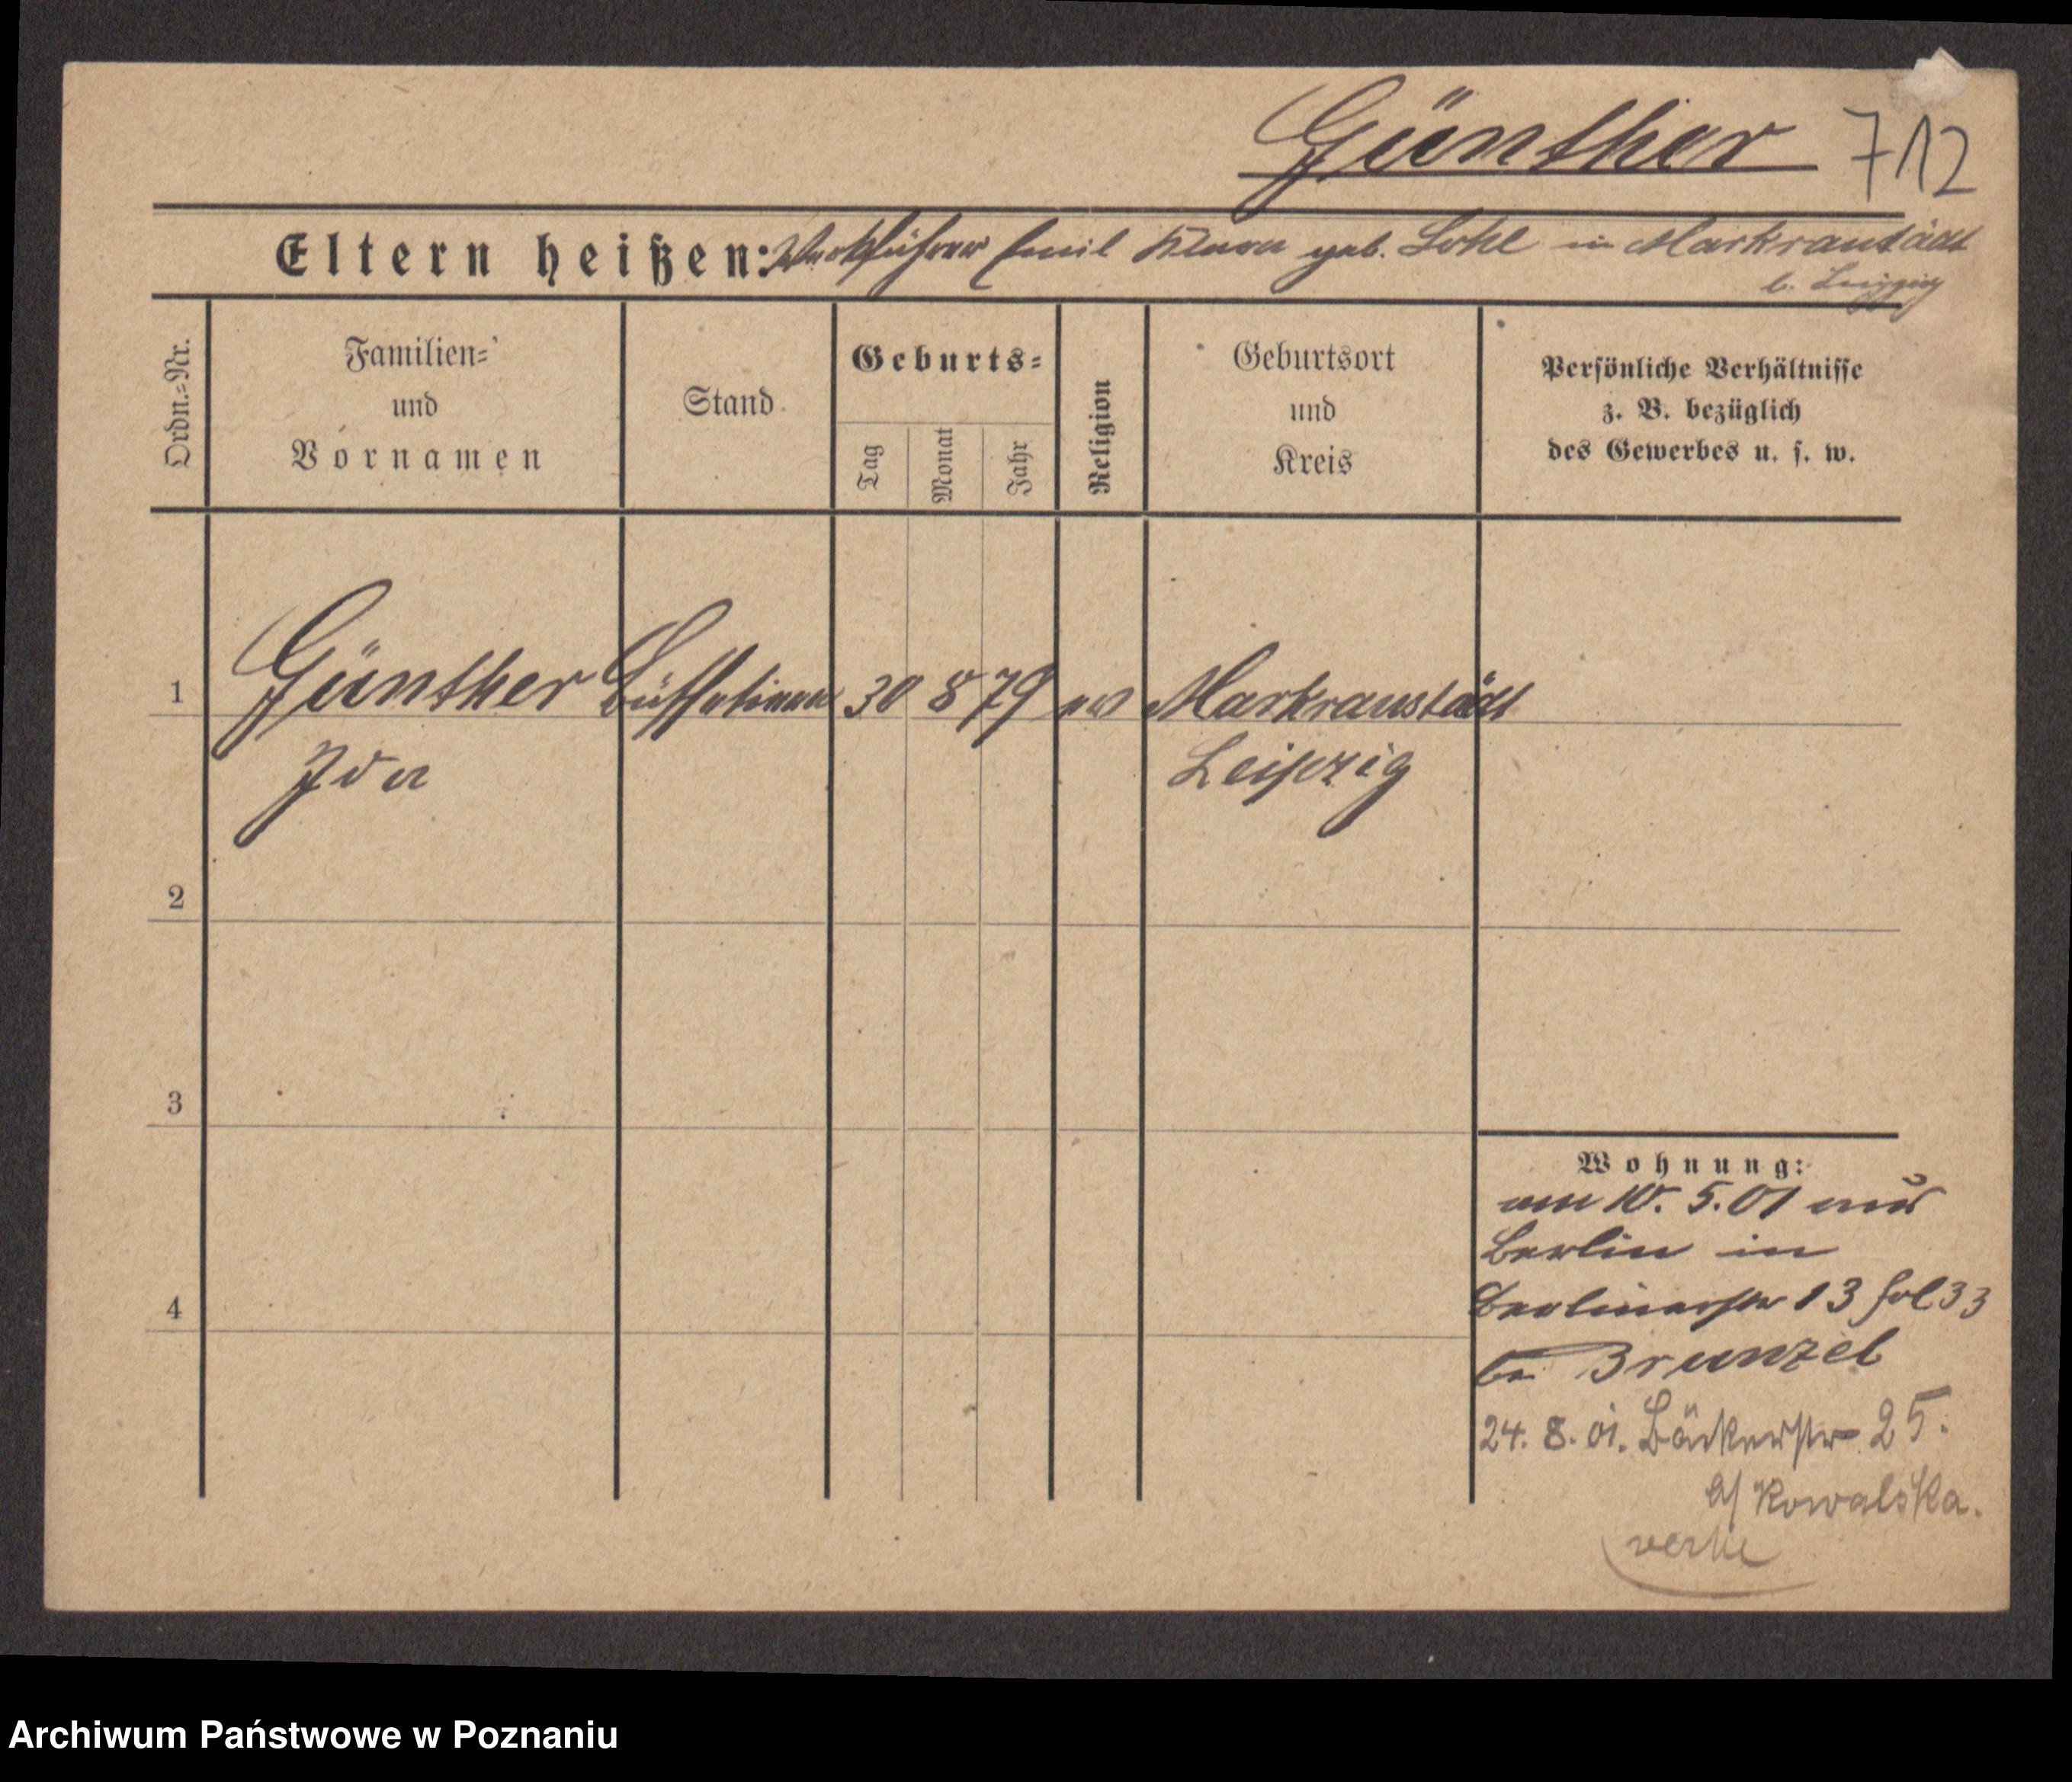 Günther 712
Eltern heißen: Werkführer Emil Klara geb. Lohl in Markranstädt
b. Leipzig
Ordn.=Nr.
Familien=
und
Vornamen
Stand
Geburts=
Tag
Monat
Jahr
Religion
Geburtsort
und
Kreis
Persönliche Verhältnisse
z. B. bezüglich
des Gewerbes u. s. w.
1 Günther 30 8 79 ev Markranstädt
Ida Leipzig
2
3
4
Wohnung:
am 10. 5. 01 aus
Berlin in
Berlinerstr 13 fol 33
bei Brunzel
24. 8. 01. Bäckerstr 25.
b/ Kowalska.
Archiwum Państwowe w Poznaniu